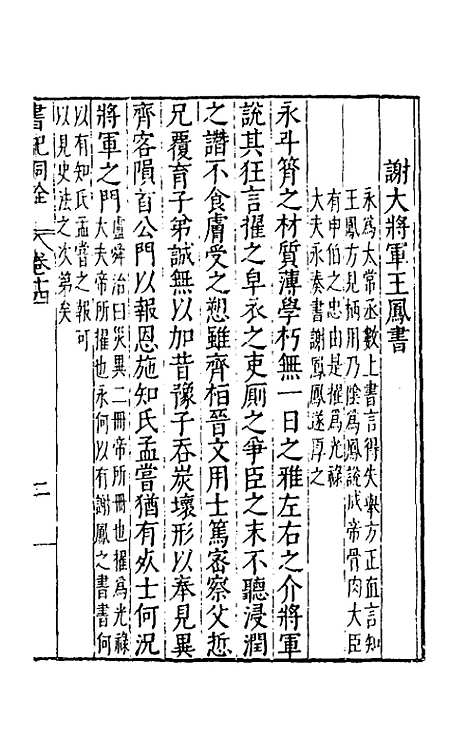 謝大將軍王鳳書
永為太常丞數上書言得失舉方正直言知
王鳳方見柄用乃陰為鳳說成帝骨肉大臣
有申伯之忠由是擢為光祿
大夫永奏書謝鳳鳳遂厚之
永斗筲之材質薄學朽無一日之雅左右之介將軍
說其狂言擢之皁衣之吏廁之爭臣之末不聽浸潤
之譖不食膚受之愬雖齊桓晉文用士篤密察父悊
兄覆育子弟誠無以加昔豫子吞炭壞形以奉見異
齊客隕首公門以報恩施知氏孟嘗猶有死士何況
將軍之門
盧舜治曰災異二冊帝所冊也擢為光祿
大夫帝所擢也永何以有謝鳳之書書何
以有知氏孟嘗之報可
以見史法之次第矣
書記洞詮 卷十四 二